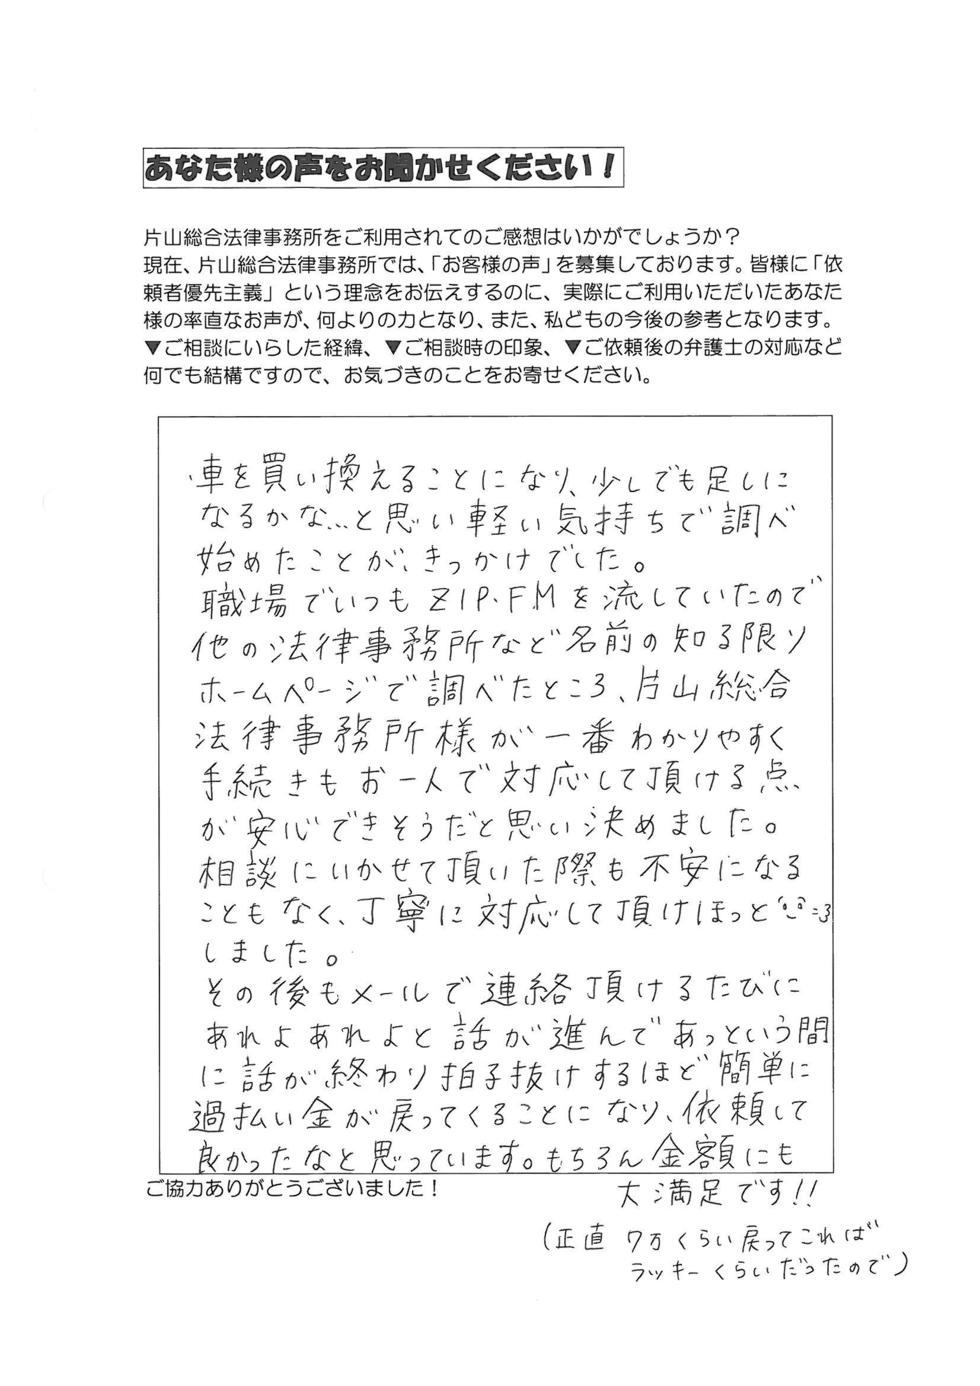 あなた様の声をお聞かせください！
片山総合法律事務所をご利用されてのご感想はいかがでしょうか？
現在、片山総合法律事務所では、「お客様の声」を募集しております。皆様に「依
頼者優先主義」という理念をお伝えするのに、実際にご利用いただいたあなた
様の率直なお声が、何よりの力となり、また、私どもの今後の参考となります。
▼ご相談にいらした経緯、▼ご相談時の印象、▼ご依頼後の弁護士の対応など
何でも結構ですので、お気づきのことをお寄せください。
・車を買い換えることになり、少しでも足しに
なるかな...と思い軽い気持ちで調べ
始めたことが、きっかけでした。
職場でいつもZIP・FMを流していたので
他の法律事務所など名前の知る限り
ホームページで調べたところ、片山総合
法律事務所様が一番わかりやすく
手続きもお一人で対応して頂ける点
が安心できそうだと思い決めました。
相談にいかせて頂いた際も不安になる
こともなく、丁寧に対応して頂けほっと
しました。
その後もメールで連絡頂けるたびに
あれよあれよと話が進んであっという間
に話が終わり拍子抜けするほど簡単に
過払い金が戻ってくることになり、依頼して
良かったなと思っています。もちろん金額にも
大満足です!!
(正直 7万くらい戻ってこれば
ラッキーくらいだったので)
ご協力ありがとうございました！